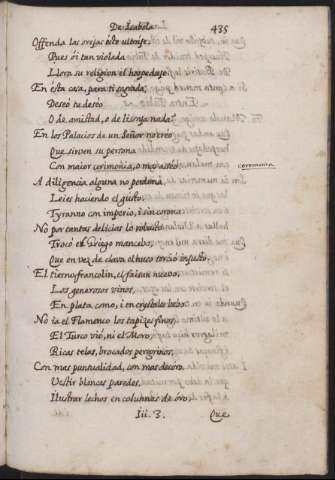 De Isabela. 435
Offenda las orejas este ultraje.
Pues oi tan violada
Llora su religion el hospedaje.
En ésta casa, para ti sagrada,
Deseó tu deseo
O de amistad, o de lisonja nada?
En los Palacios de un Señor no creo
Que sirven su persona
Con maior cerimonia, o mas aseo.
ceremonia
A diligencia alguna no perdona
Leies haciendo el gusto
Tyranno con imperio, i sin corona:
No por tantas delicias lo robusto
Trocó el Griego mancebo,
Que en vez de clava el huso torció injusto.
El tierno francolin, el faisan nuevo,
Los generosos vinos,
En plata como, i en crystales bebo.
No ia el Flamenco los tapizes finos,
El Turco vió, ni el Moro,
Ricas telas, brocados peregrinos,
Con mas puntualidad, con mas decoro
Vestir blancas paredes,
Ilustrar lechos en columnas de óro,
Iii. 3. Que